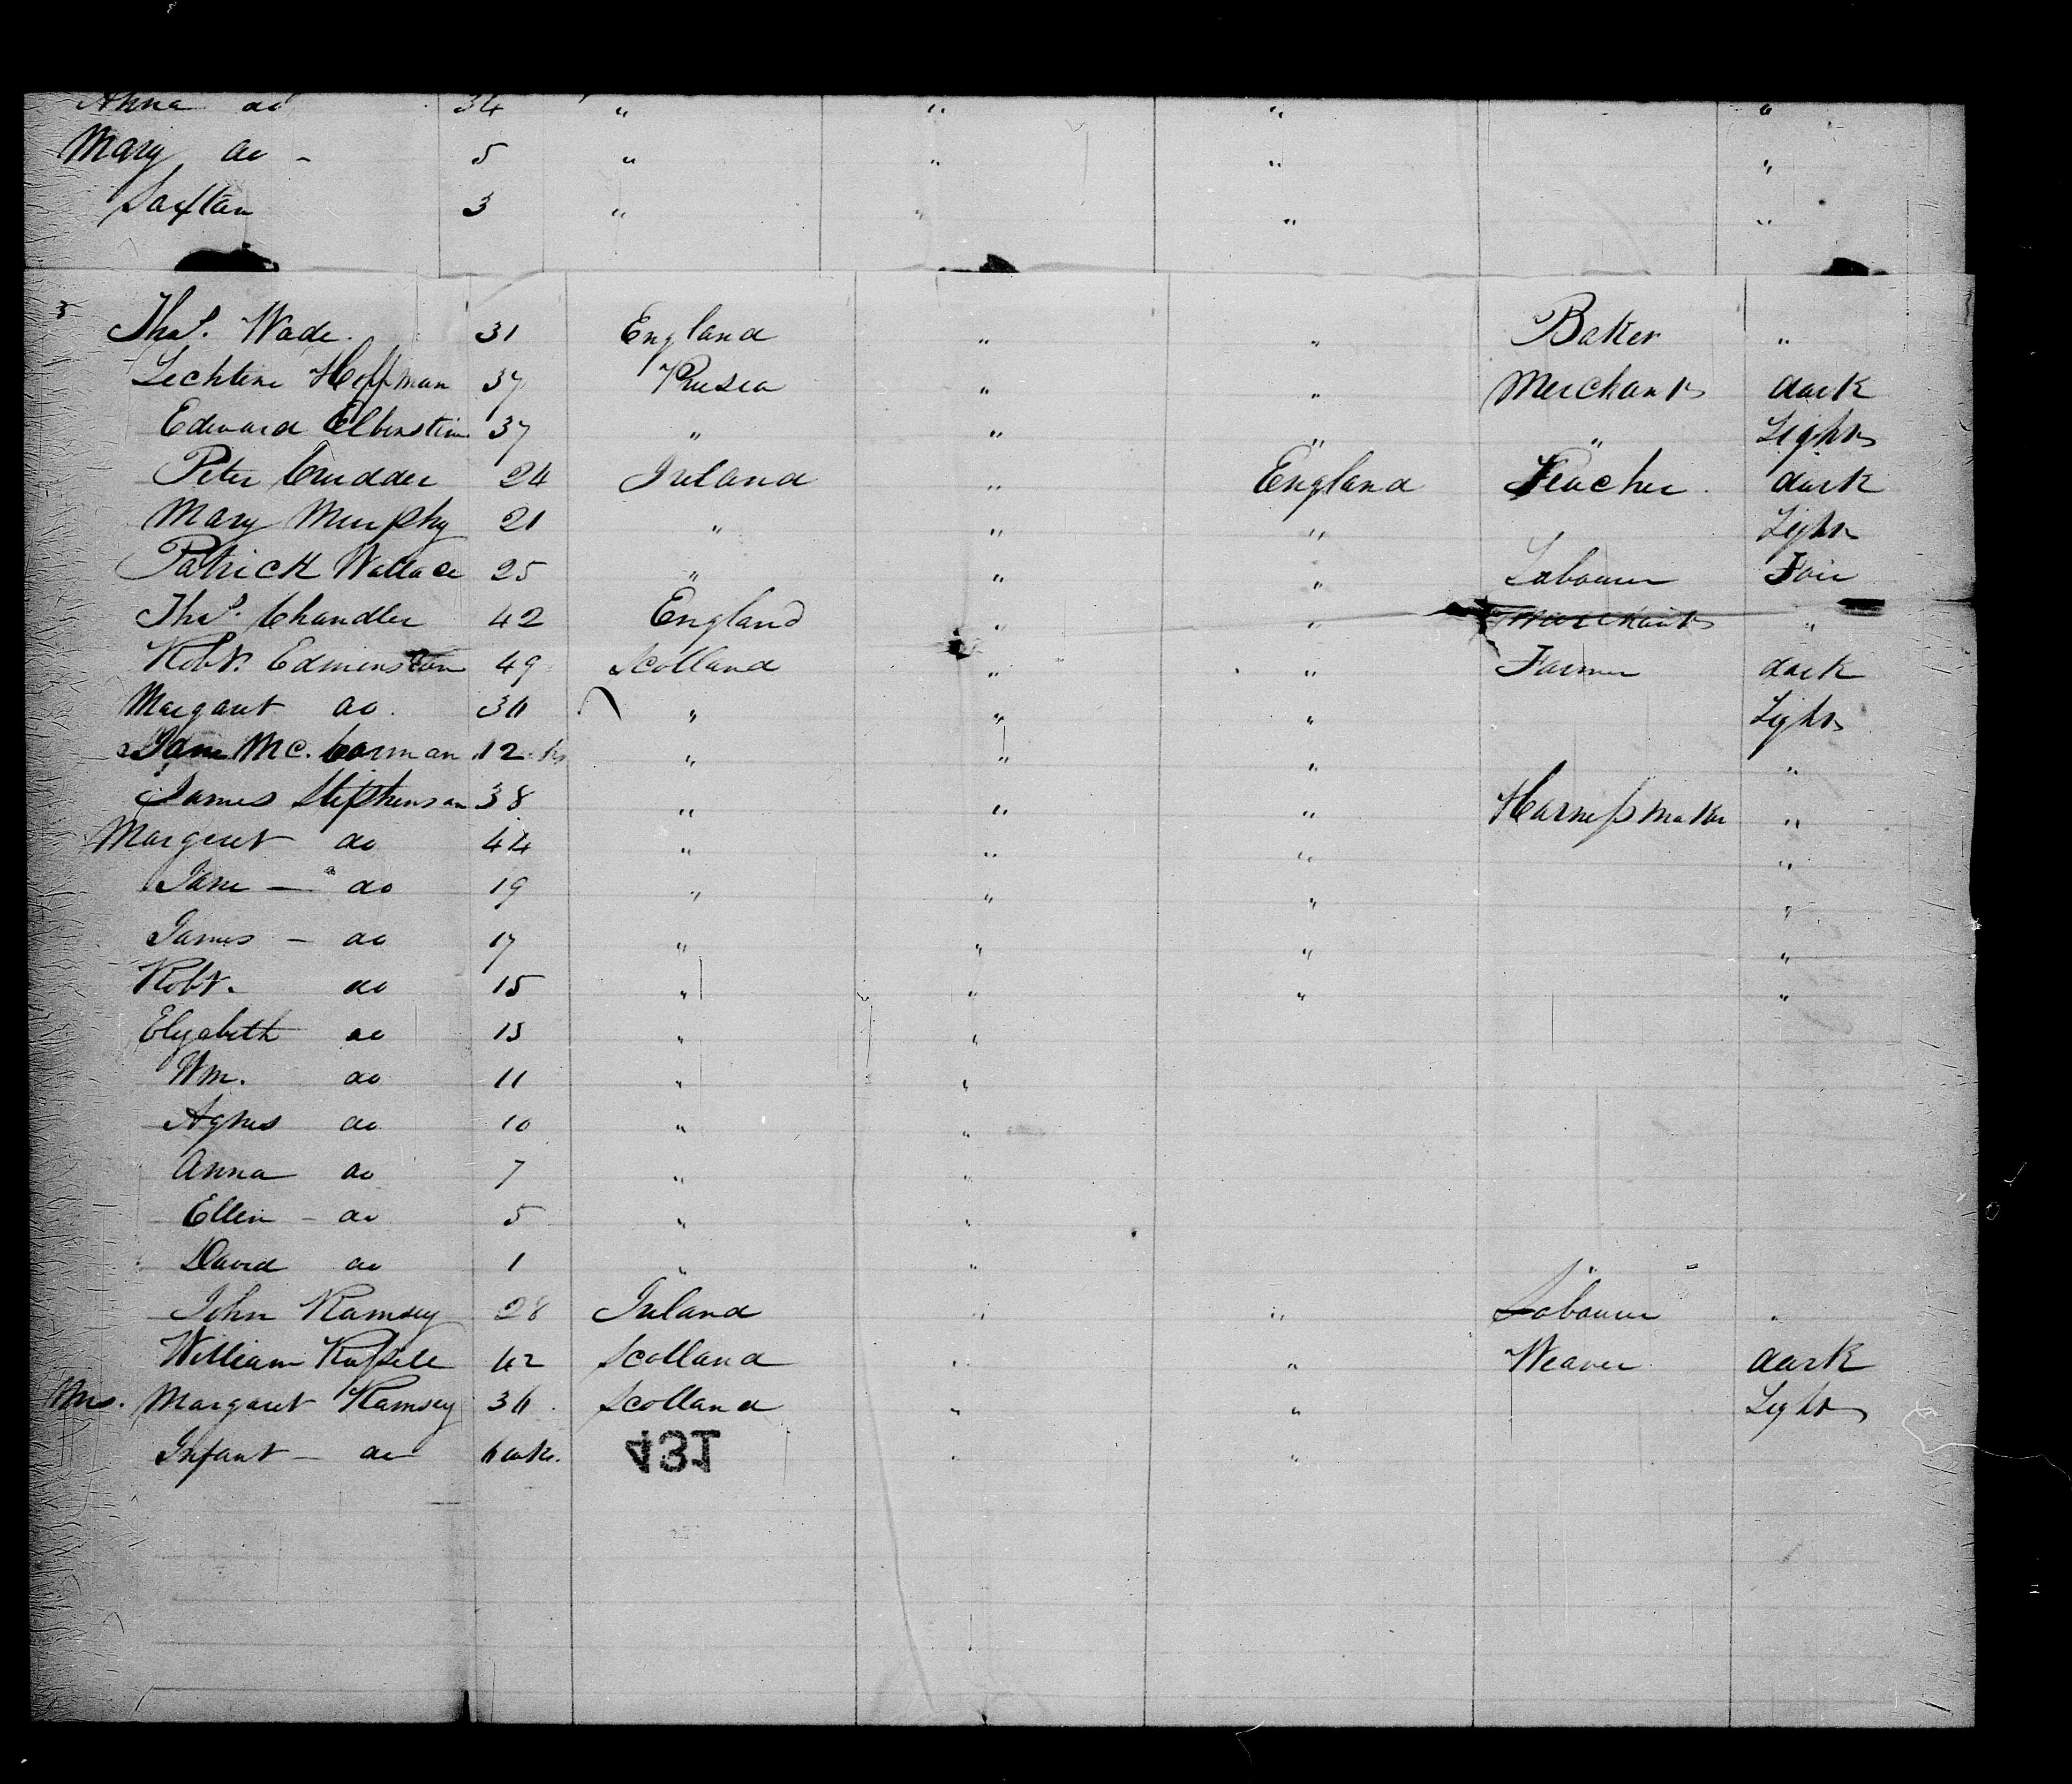 Anna do 34 " " " "
Mary do - 5 " " " "
Saxton 3 " " " "
Thos. Wade 31 England " " Baker "
Lechtene Hoffman 37 Prusia " " Merchant dark
Edward Elbenstine 37 " " " " Light
Peter Crudder 24 Ireland " England Teacher dark
Mary Murphy 21 " " " Light
Patrick Wallace 25 " " " Labourer Fair
Thos. Chandler 42 England " " Merchant "
Robt. Edminston 49 Scotland " " Farmer dark
Margaret do 36 " " " Light
Jane Mc. Corman 12 " " " "
James Stephenson 38 " " " Harness maker "
Margeret do 44 " " " "
Jane - do 19 " " " "
James - do 17 " " " "
Robt. do 15 " " " "
Elyzabeth do 13 " "
Wm. do 11 " "
Agnes do 10 " "
Anna do 7 " "
Ellen - do 5 " "
David do 1 " "
John Ramsey 28 Ireland " " Labourer "
William Russell 42 Scotland " " Weaver dark
Mrs. Margaret Ramsey 36 Scotland " " Light
Infant - do 6 wks. " "
431